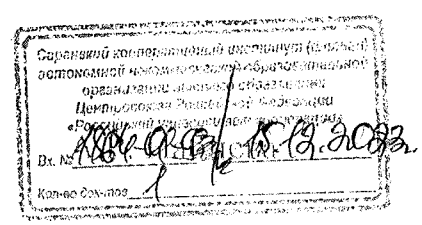 Саранский кооперативный институт (филиал)
автономной некоммерческой образовательной
организации высшего образования
Центросоюза Российской Федерации
«Российский университет кооперации»
Вх. № 15.12.2022г.
Кол-во док-тов 1